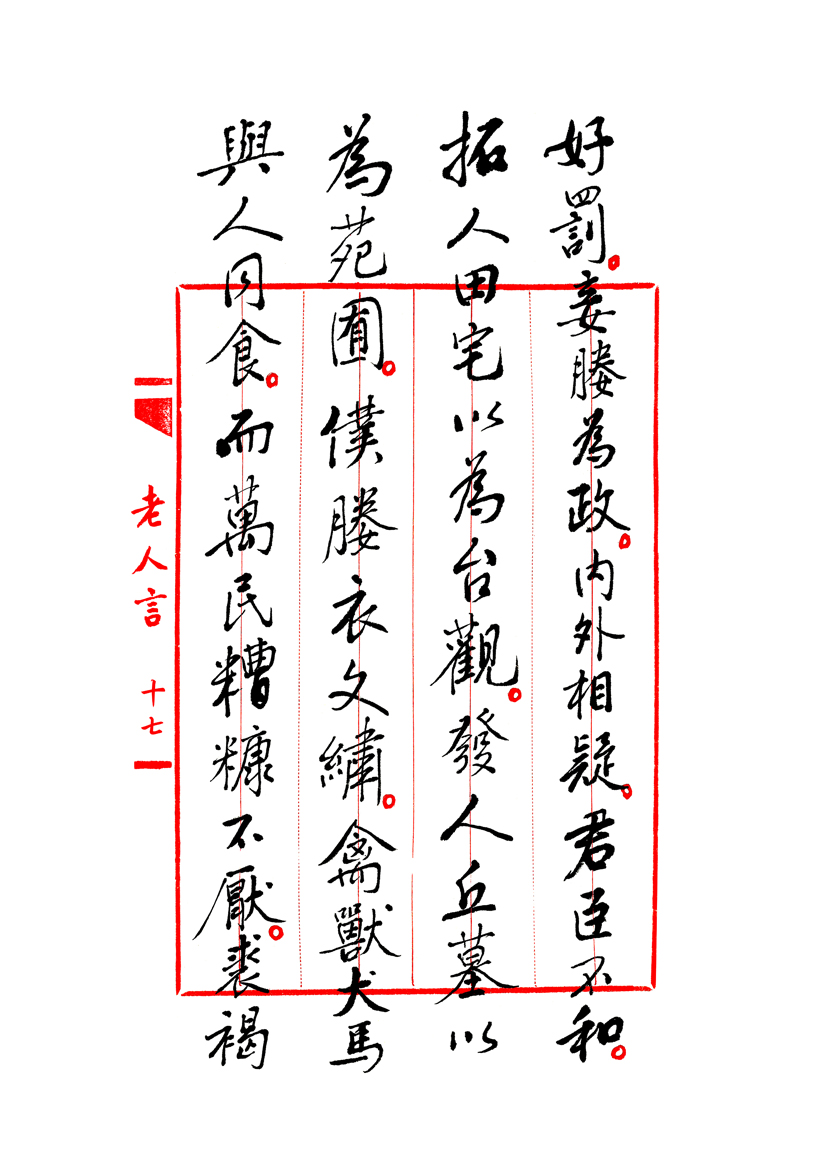 好罰。妾媵為政。內外相疑。君臣不和。
拓人田宅以為台觀。發人丘墓以
為苑囿。僕媵衣文繡。禽獸犬馬
與人同食。而萬民糟糠不厭。裘褐
老人言 十七